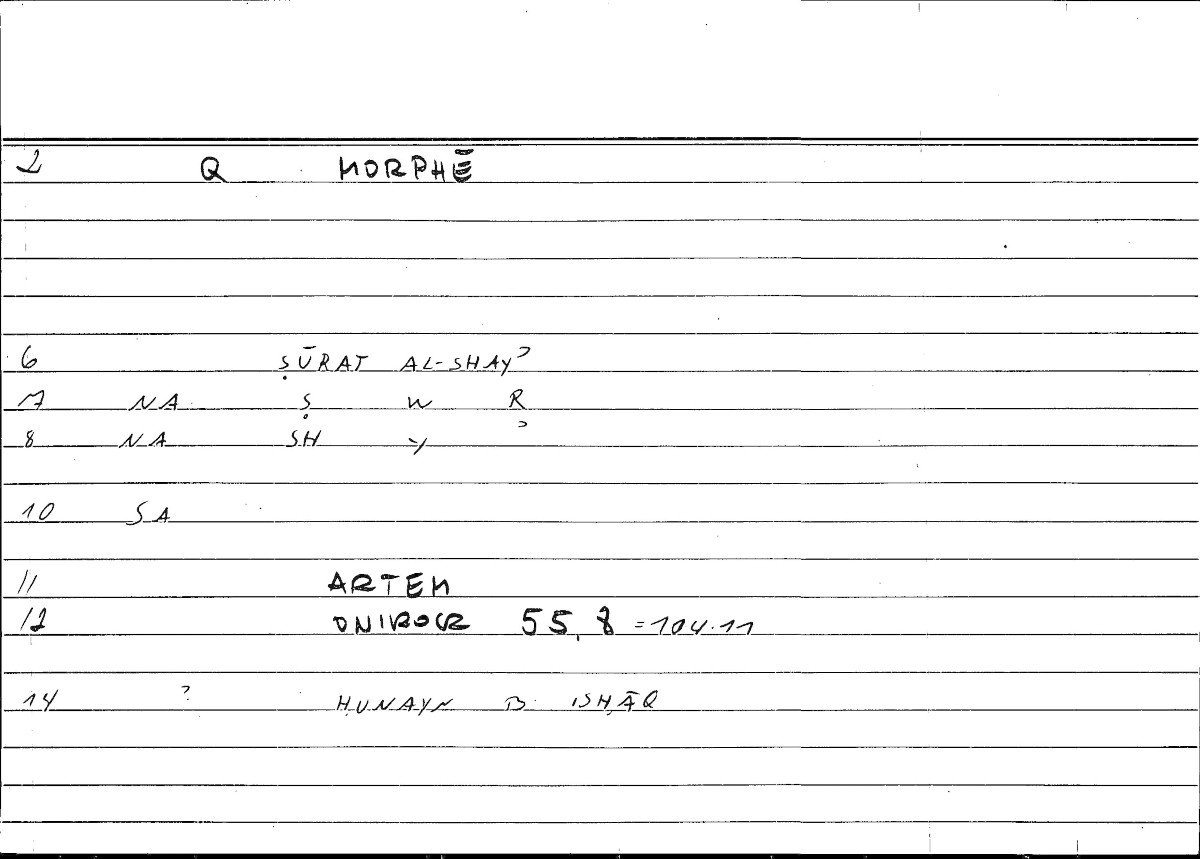 2 Q MORPHĒ
6 ṢŪRAT AL-SHAYʾ
7 NA Ṣ W R
8 NA SH Y ʾ
10 SA
11 ARTEM
12 ONIROCR 55,8 =104.11
14 ? ḤUNAYN B. ISḤĀQ